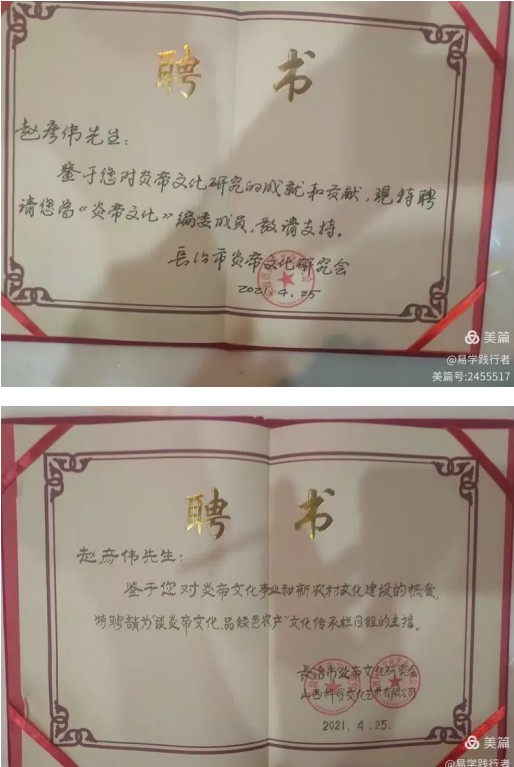 聘书
赵彦伟先生：
鉴于您对炎帝文化研究的成就和贡献，现特聘
请您当《炎帝文化》编委成员，敬请支持。
長治市炎帝文化研究会
2021.4.25
美篇
@易学践行者
美篇号:2455517
聘书
赵彦伟先生：
鉴于您对炎帝文化事业和新农村文化建设的热爱，
特聘請为"谈炎帝文化，品绿色农产"文化传承栏目组的主播。
長治市炎帝文化研究会
山西科亏文化艺术有限公司
2021.4.25.
美篇
@易学践行者